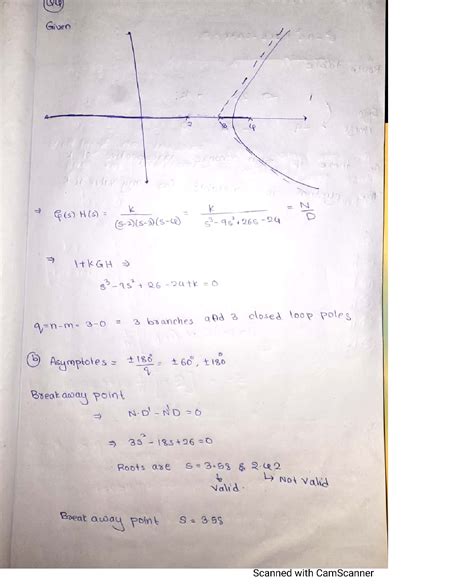 Given
2 3 4
⇒ G(s) H(s) = K / (s-2)(s-3)(s-4) = K / s³-9s²+26s-24 = N/D
⇒ 1+KGH ⇒
s³-9s²+26-24+k=0
q=n-m= 3-0 = 3 branches and 3 closed loop poles
(b) Asymptotes = ±180°/q = ±60°, ±180°
Breakaway point
⇒ N.D' - N'D = 0
⇒ 3s²-18s+26=0
Roots are s=3.58 & 2.42
Valid. ↳ Not Valid
Break away point s=3.58
Scanned with CamScanner